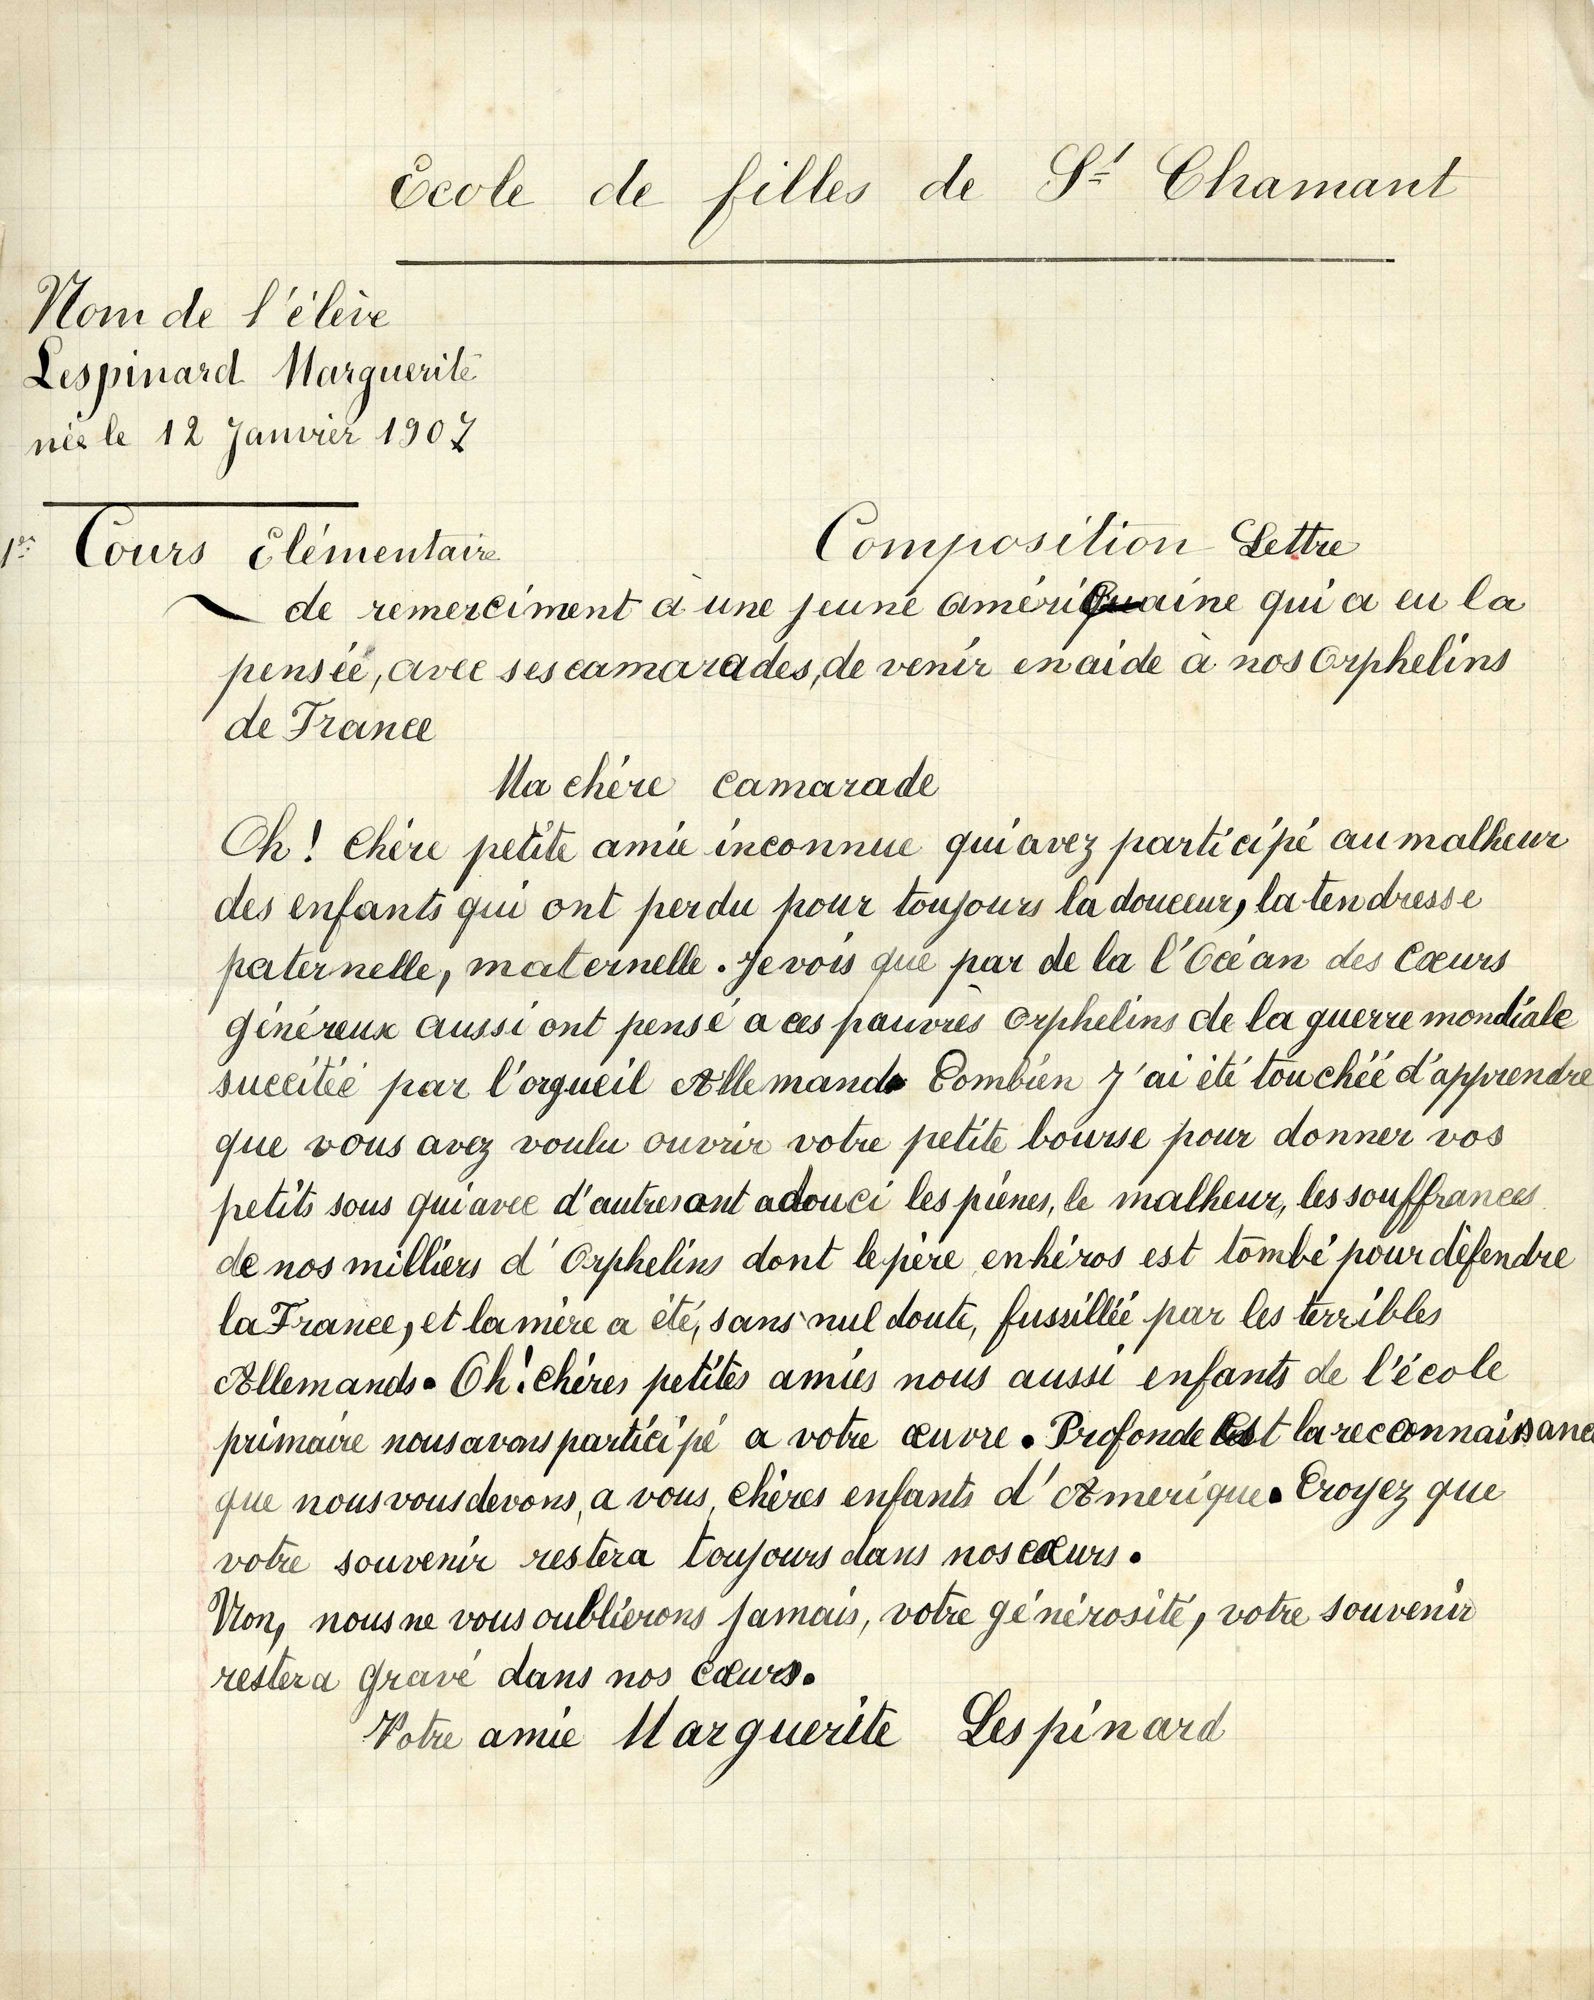 Ecole de filles de St Chamant
Nom de l'élève
Lespinard Marguerite
née le 12 Janvier 1907
1er Cours Elémentaire
Composition Lettre
de remerciment à une jeune Amériquaine qui a eu la
pensée, avec ses camarades, de venir en aide à nos Orphelins
de France
Ma chére camarade
Oh! Chère petite amie inconnue qui avez participé au malheur
des enfants qui ont perdu pour toujours la douceur, la tendresse
paternelle, maternelle. Je vois que par de la l'Océan des Cœurs
généreux aussi ont pensé a ces pauvres Orphelins de la guerre mondiale
succitée par l'orgueil Allemand. Combien j'ai été touchéé d'apprendre
que vous avez voulu ouvrir votre petite bourse pour donner vos
petits sous qui avec d'autres ont adouci les piènes, le malheur, les souffrances
de nos milliers d'Orphelins dont le père en héros est tombé pour défendre
la France, et la mère a été, sans nul doute, fussillée par les terribles
Allemands. Oh! Chères petites amies nous aussi enfants de l'école
primaire nous avons participé a votre œuvre. Profonde est la reconnaissance
que nous vous devons, a vous, Chères enfants d'Amerique. Croyez que
votre souvenir restera toujours dans nos cœurs.
Non, nous ne vous oublierons jamais, votre générosité, votre souvenir
restera gravé dans nos cœurs.
Votre amie Marguerite Lespinard